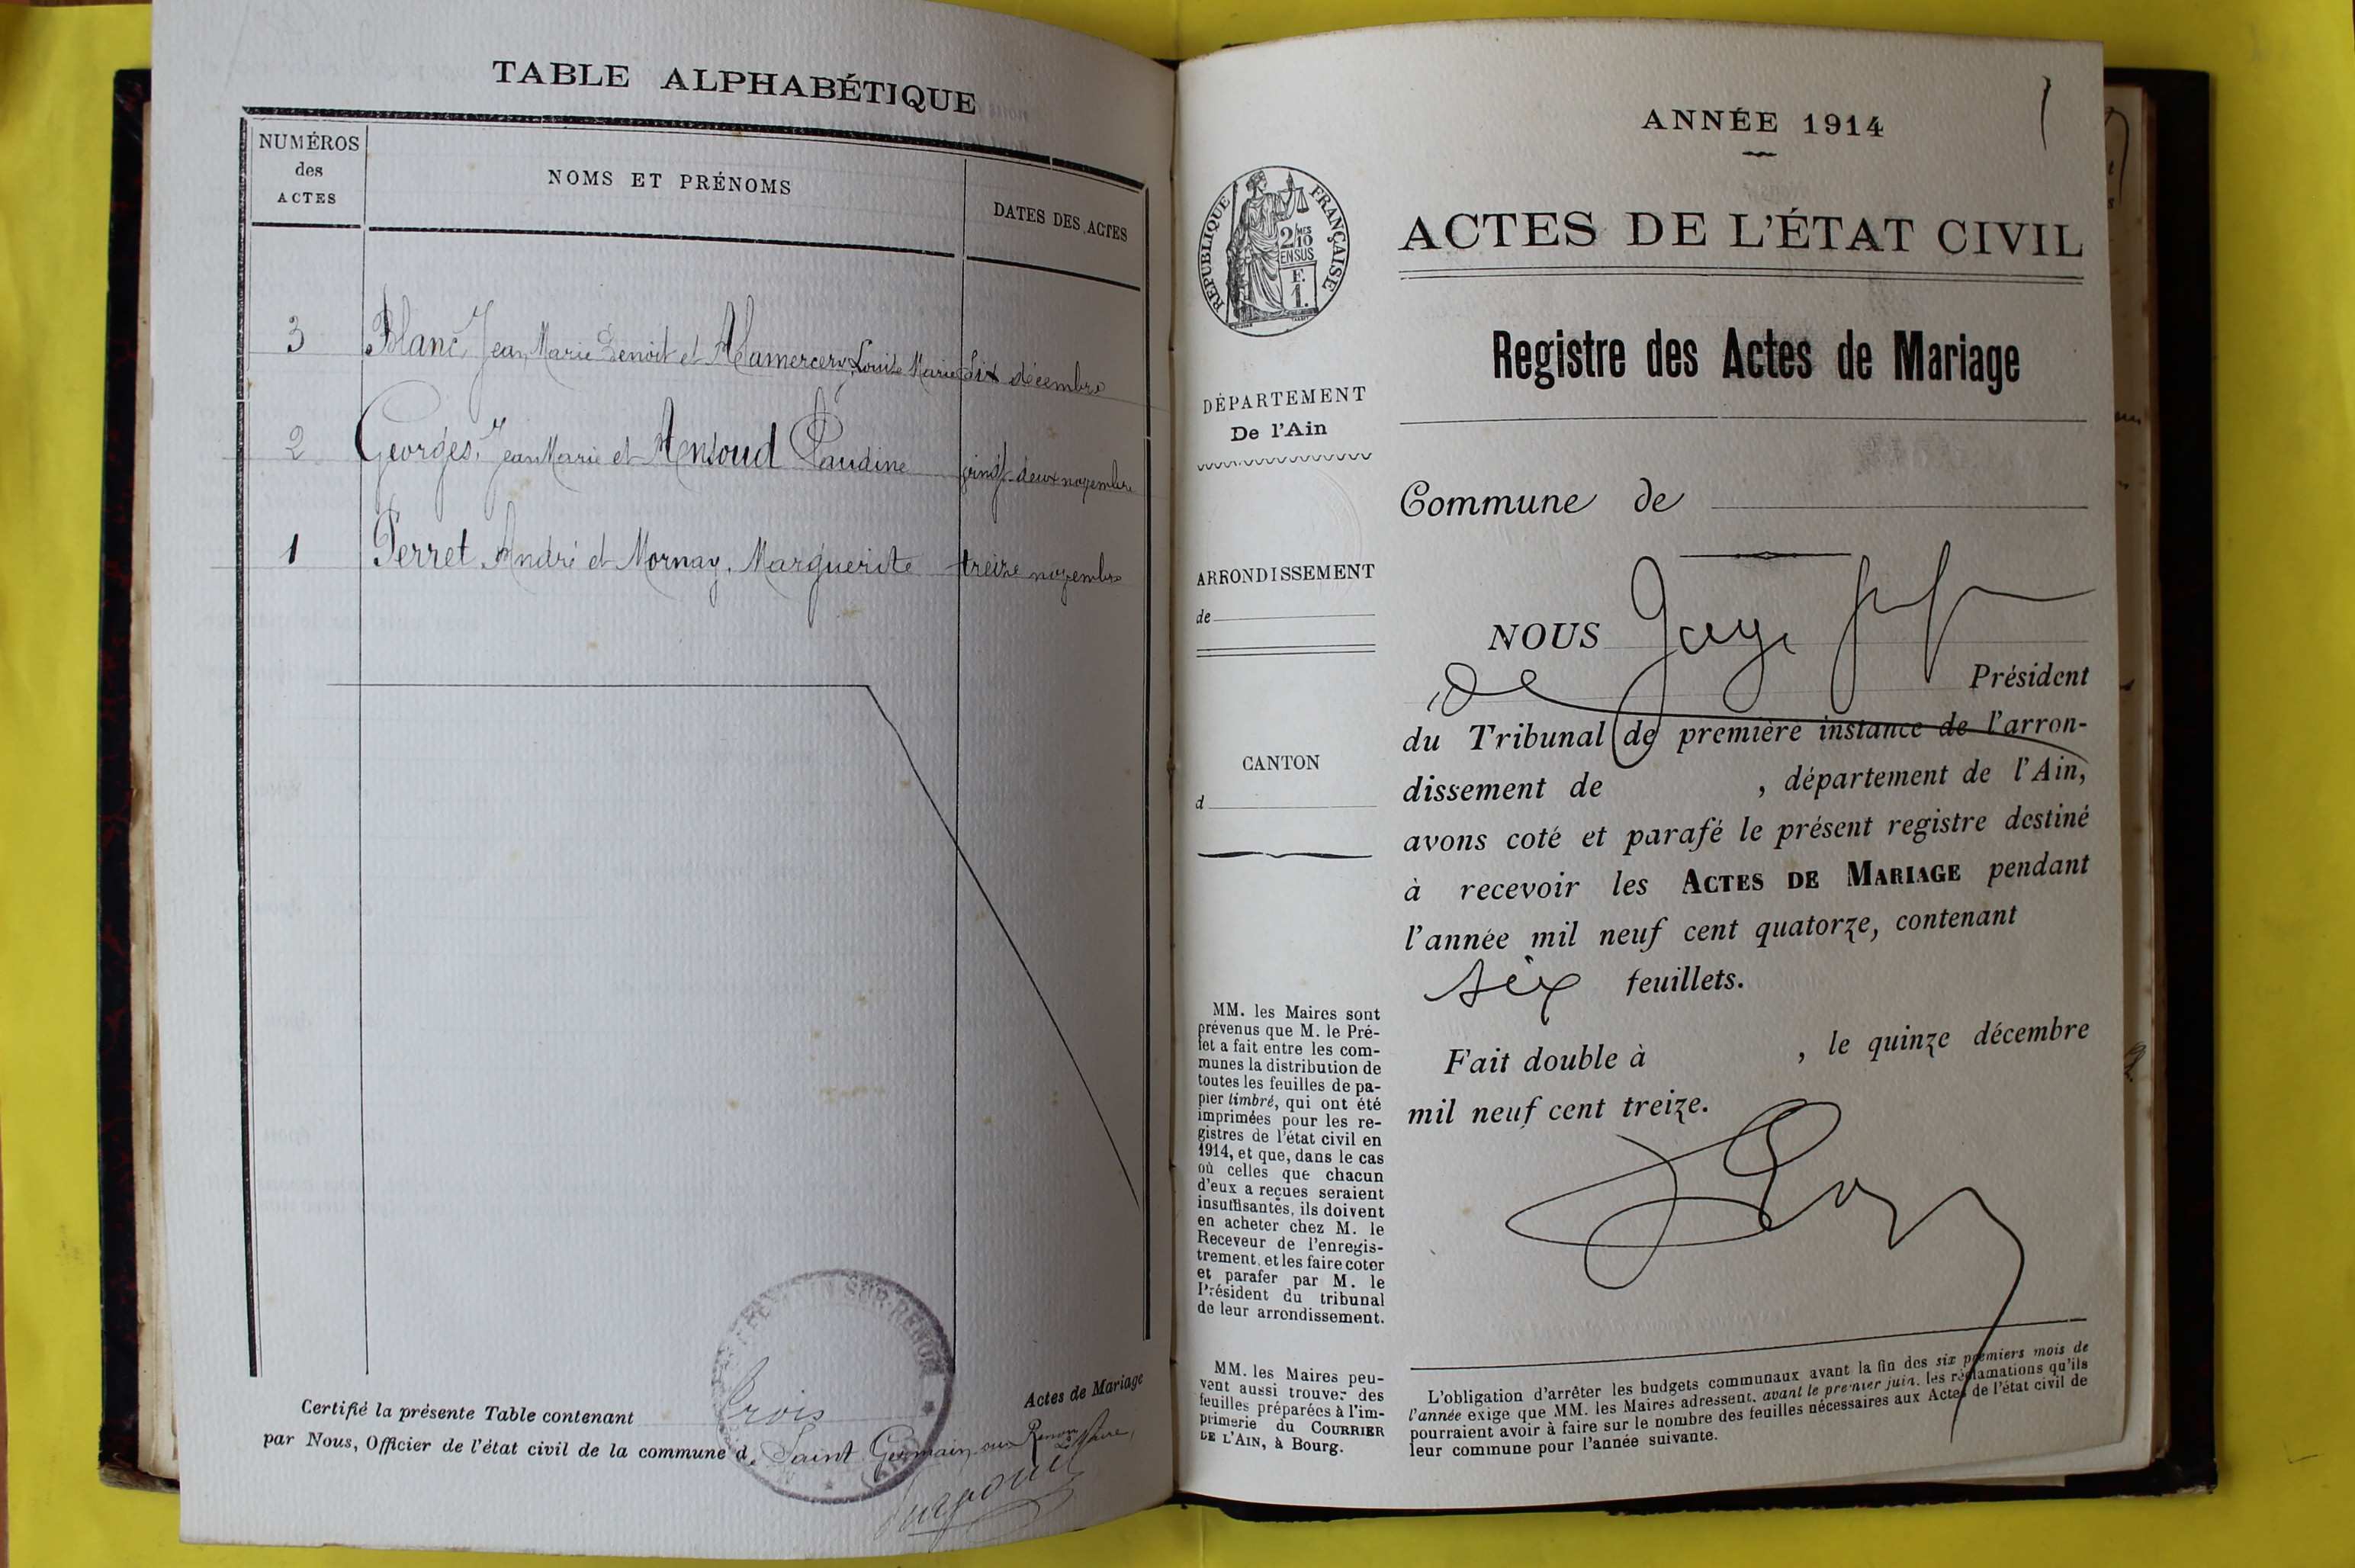 TABLE ALPHABÉTIQUE
NUMÉROS
des
ACTES
NOMS ET PRÉNOMS
DATES DES ACTES
3 Blanc, Jean Marie Benoit et Alamercery Louise Marie dix décembre
2 Georges, Jean Marie et Ansoud Claudine vingt-deux novembre
1 Perret André et Mornay, Marguerite treize novembre
Certifié la présente Table contenant trois Actes de Mariage
par Nous, Officier de l'état civil de la commune d. Saint Germain sur Renon
Le Maire,
ANNÉE 1914
1
RÉPUBLIQUE FRANÇAISE
2/10 MES
EN SUS
F.
1.
ACTES DE L'ÉTAT CIVIL
Registre des Actes de Mariage
DÉPARTEMENT
De l'Ain
ARRONDISSEMENT
de
CANTON
d
MM. les Maires sont
prévenus que M. le Pré-
fet a fait entre les com-
munes la distribution de
toutes les feuilles de pa-
pier timbré, qui ont été
imprimées pour les re-
gistres de l'état civil en
1914, et que, dans le cas
où celles que chacun
d'eux a reçues seraient
insuffisantes, ils doivent
en acheter chez M. le
Receveur de l'enregis-
trement, et les faire coter
et parafer par M. le
Président du tribunal
de leur arrondissement.
MM. les Maires peu-
vent aussi trouver des
feuilles préparées à l'im-
primerie du COURRIER
DE L'AIN, à Bourg.
Commune de
NOUS
Président
du Tribunal de première instance de l'arron-
dissement de , département de l'Ain,
avons coté et parafé le présent registre destiné
à recevoir les ACTES DE MARIAGE pendant
l'année mil neuf cent quatorze, contenant
six feuillets.
Fait double à , le quinze décembre
mil neuf cent treize.
L'obligation d'arrêter les budgets communaux avant la fin des six premiers mois de
l'année exige que MM. les Maires adressent, avant le premier juin, les réclamations qu'ils
pourraient avoir à faire sur le nombre des feuilles nécessaires aux Actes de l'état civil de
leur commune pour l'année suivante.